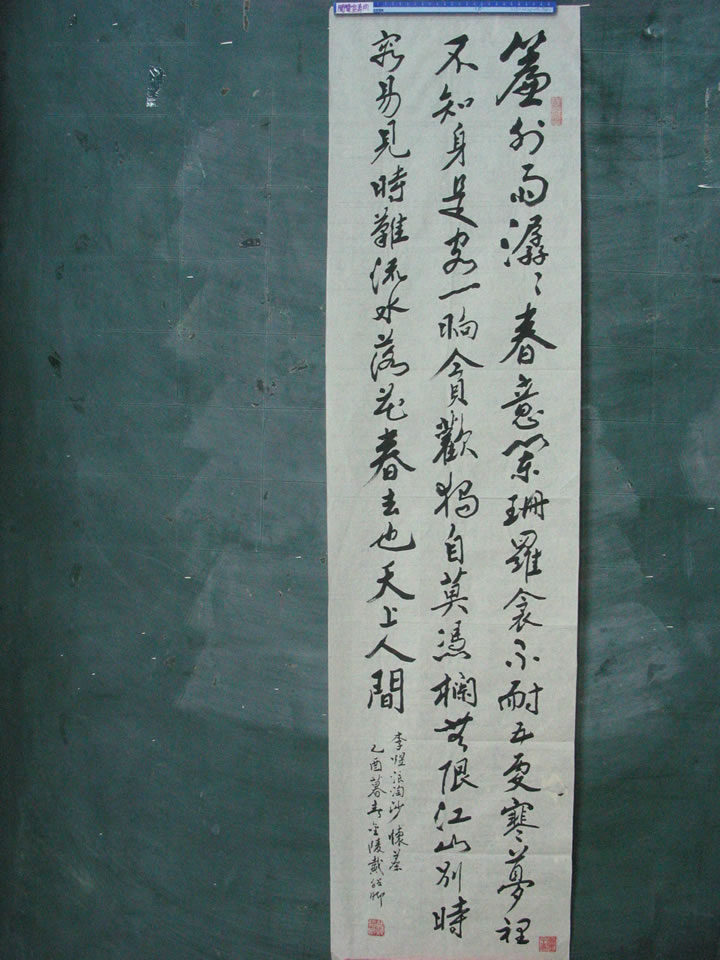 簾外雨潺〻春意闌珊羅衾不耐五更寒夢裡
不知身是客一晌貪歡獨自莫憑欄無限江山別時
容易見時難流水落花春去也天上人間
李煜浪淘沙懷
乙酉暮春金陵戴